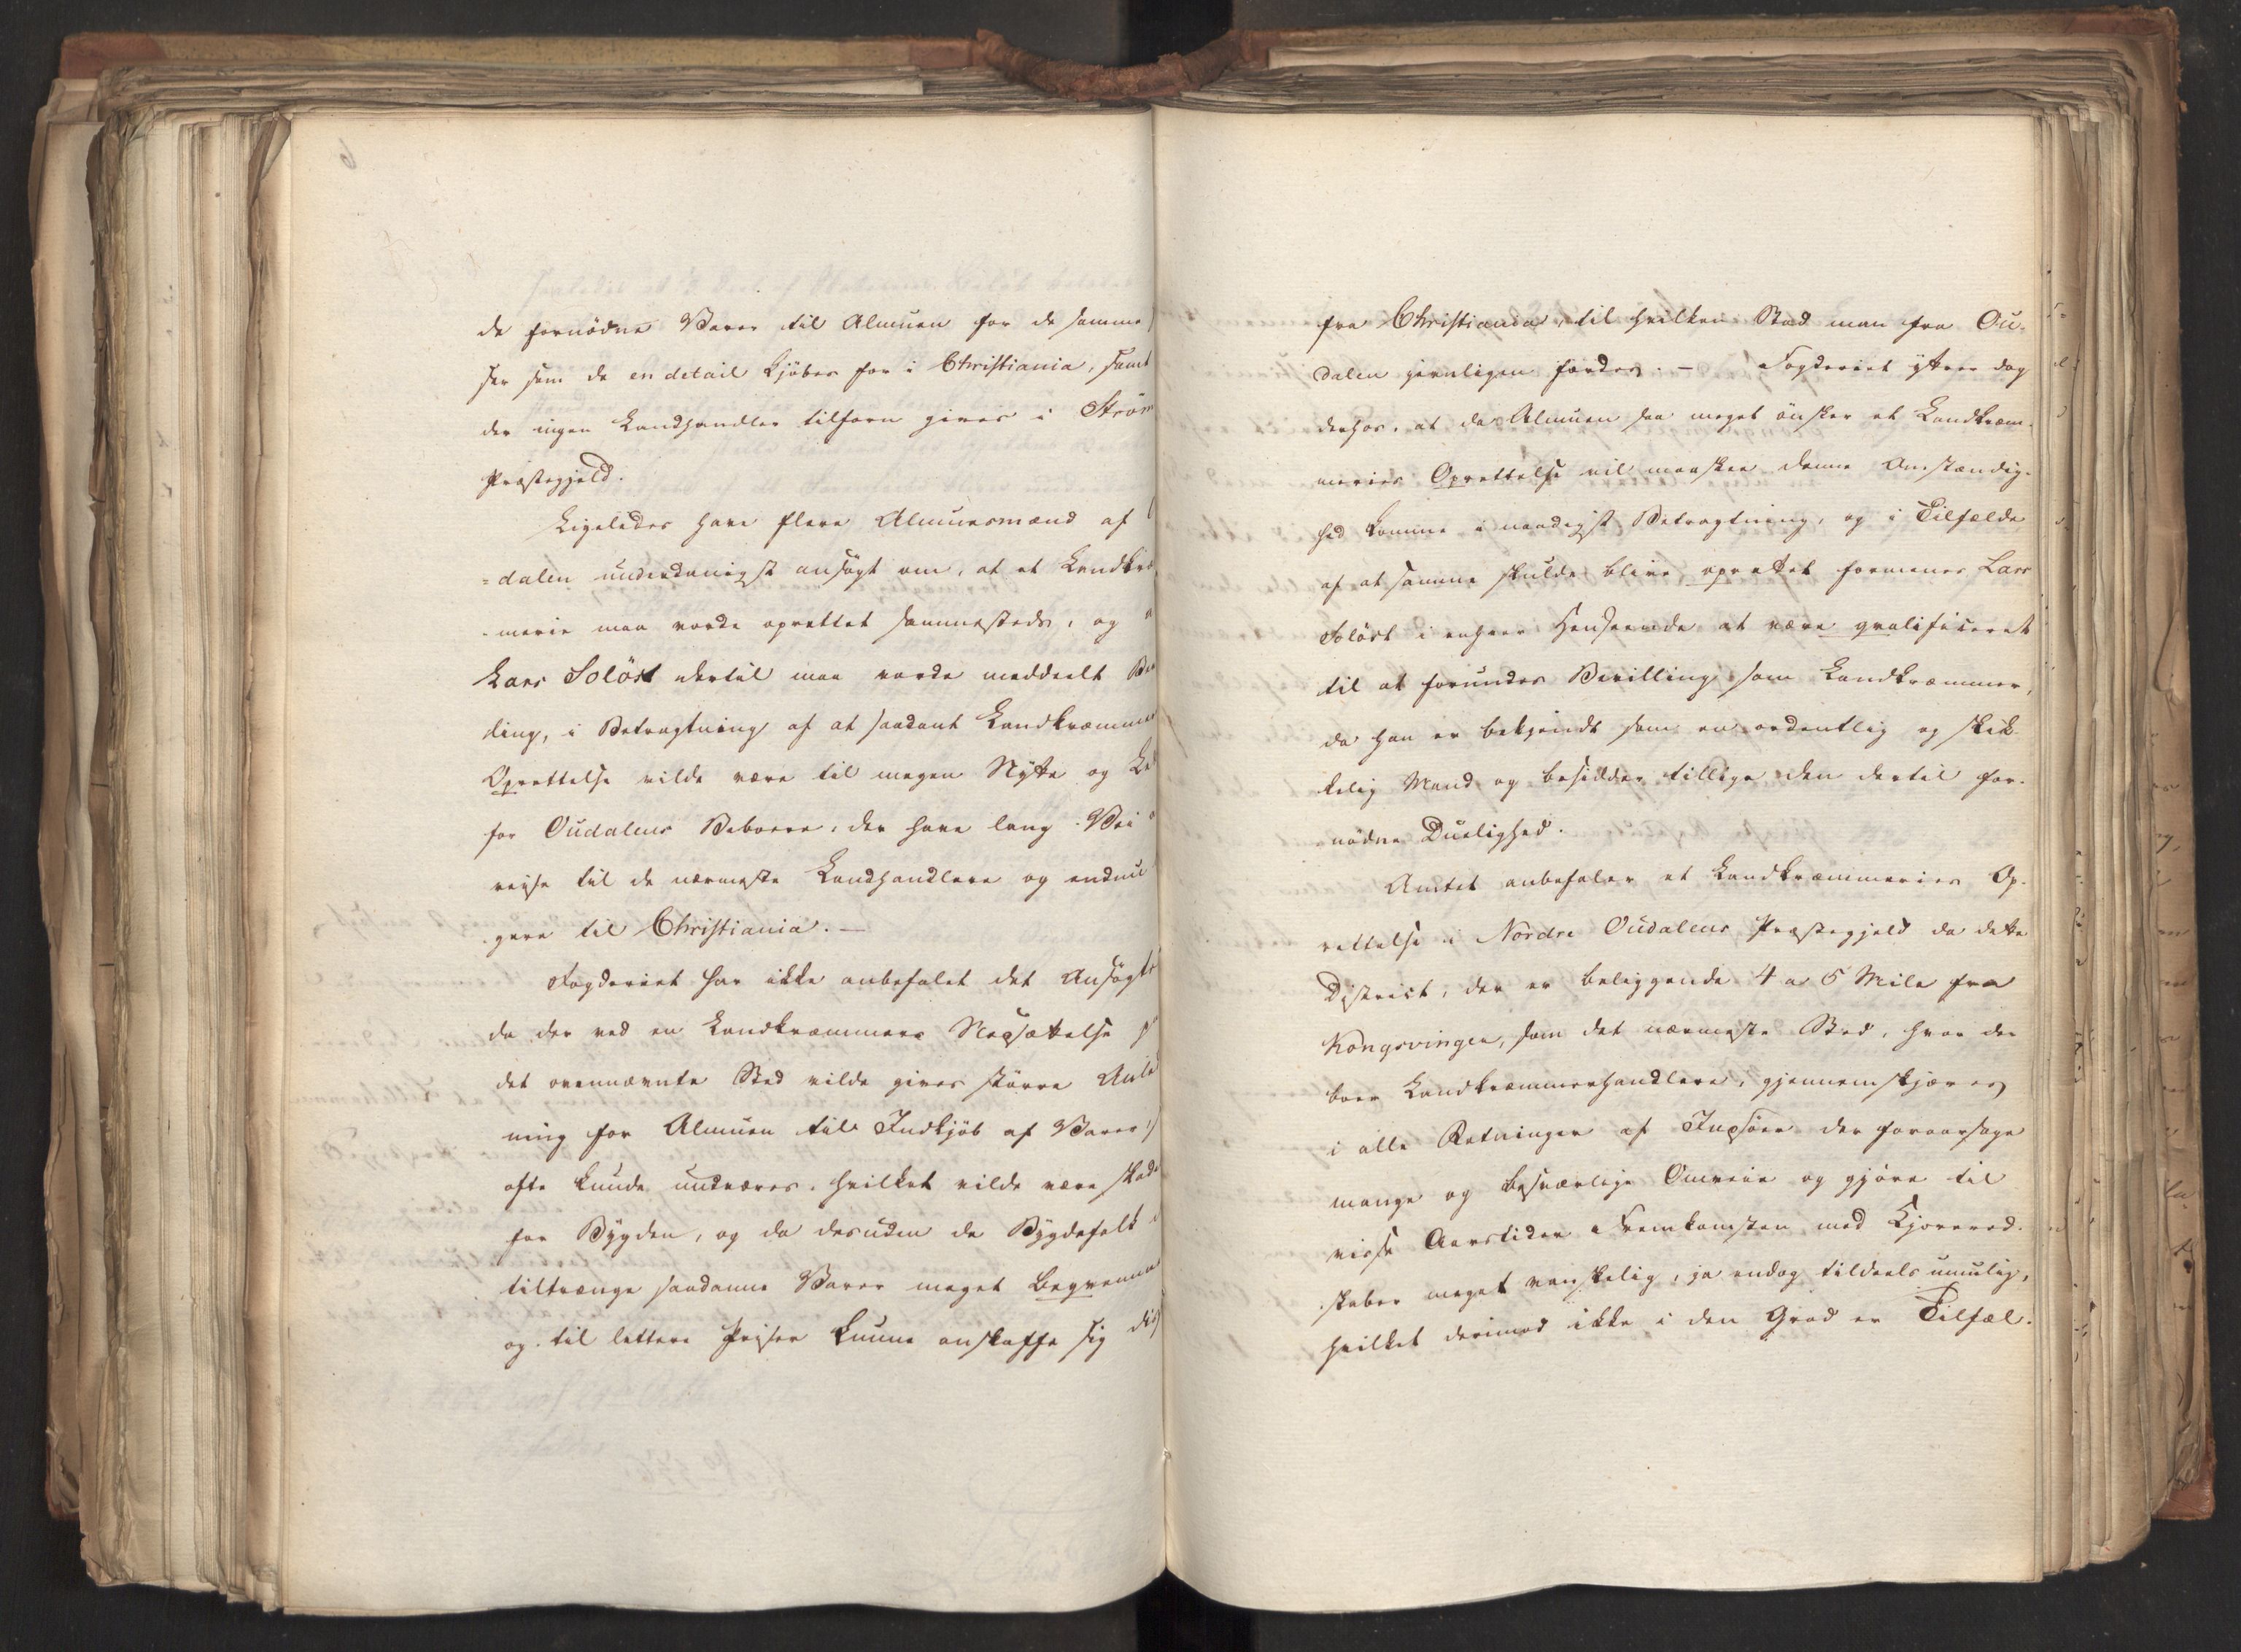 de fornødne Varer til Almuen for de samme
ser som de en detail kjøbes for i Christiania, samt
der ingen Landhandler tilforn gives i Strøm
Præstegjeld.
Ligeledes have flere Almuesmænd af
=dalen underdanigst ansøgt om, at et Landkræ
-merie maa vorde oprettet sammesteds, og
Lars Soløst dertil maa vorde meddeelt Be
ling, i Betragtning af at saadant Landkræmme
Oprettelse vilde være til megen Nytte og
for Oudalens Beboere, der have lang Vei
reise til de nærmeste Landhandlere og endnu
gere til Christiania. —
Fogderiet har ikke anbefalet det Ansøgte
da der ved en Landkræmmers Nedsættelse
det ovennævnte Sted vilde gives større Anled
ning for Almuen til Indkjøb af Varer
ofte kunde undværes, hvilket vilde være skade
for Bygden, og da desuden de Bygdefolk
tiltrænge saadanne Varer meget beqvemme
og til lettere Priser kunne anskaffe sig dis
fra Christiania, til hvilken Stad man fra Ou-
dalen jevnligen færdes. — Fogderiet yttrer dog
derhos, at da Almuen saa meget ønsker et Landkræm-
meries Oprettelse vil maaskee denne Omstændig-
hed komme i naadigst Betragtning, og i Tilfælde
af at samme skulde blive oprettet formenes Lars
Soløst i enhver Henseende at være qvalificeret
til at forundes Bevilling som Landkræmmer,
da han er bekjendt som en ordentlig og skik-
kelig Mand og besidder tillige den dertil for-
nødne Duelighed.
Amtet anbefaler et Landkræmmeries Op-
rettelse i Nordre Oudalens Præstegjeld da dette
District, der er beliggende 4 a 5 Mile fra
Kongsvinger, som det nærmeste Sted, hvor der
boer Landkræmmerhandlere, gjennemskjæres
i alle Retninger af Indsøer der foraarsage
mange og besværlige Omveie og gjøre til
visse Aarstider Fremkomsten med Kjørered-
skaber meget vanskelig, ja endog tildeels umulig,
hvilket derimod ikke i den Grad er Tilfæl-